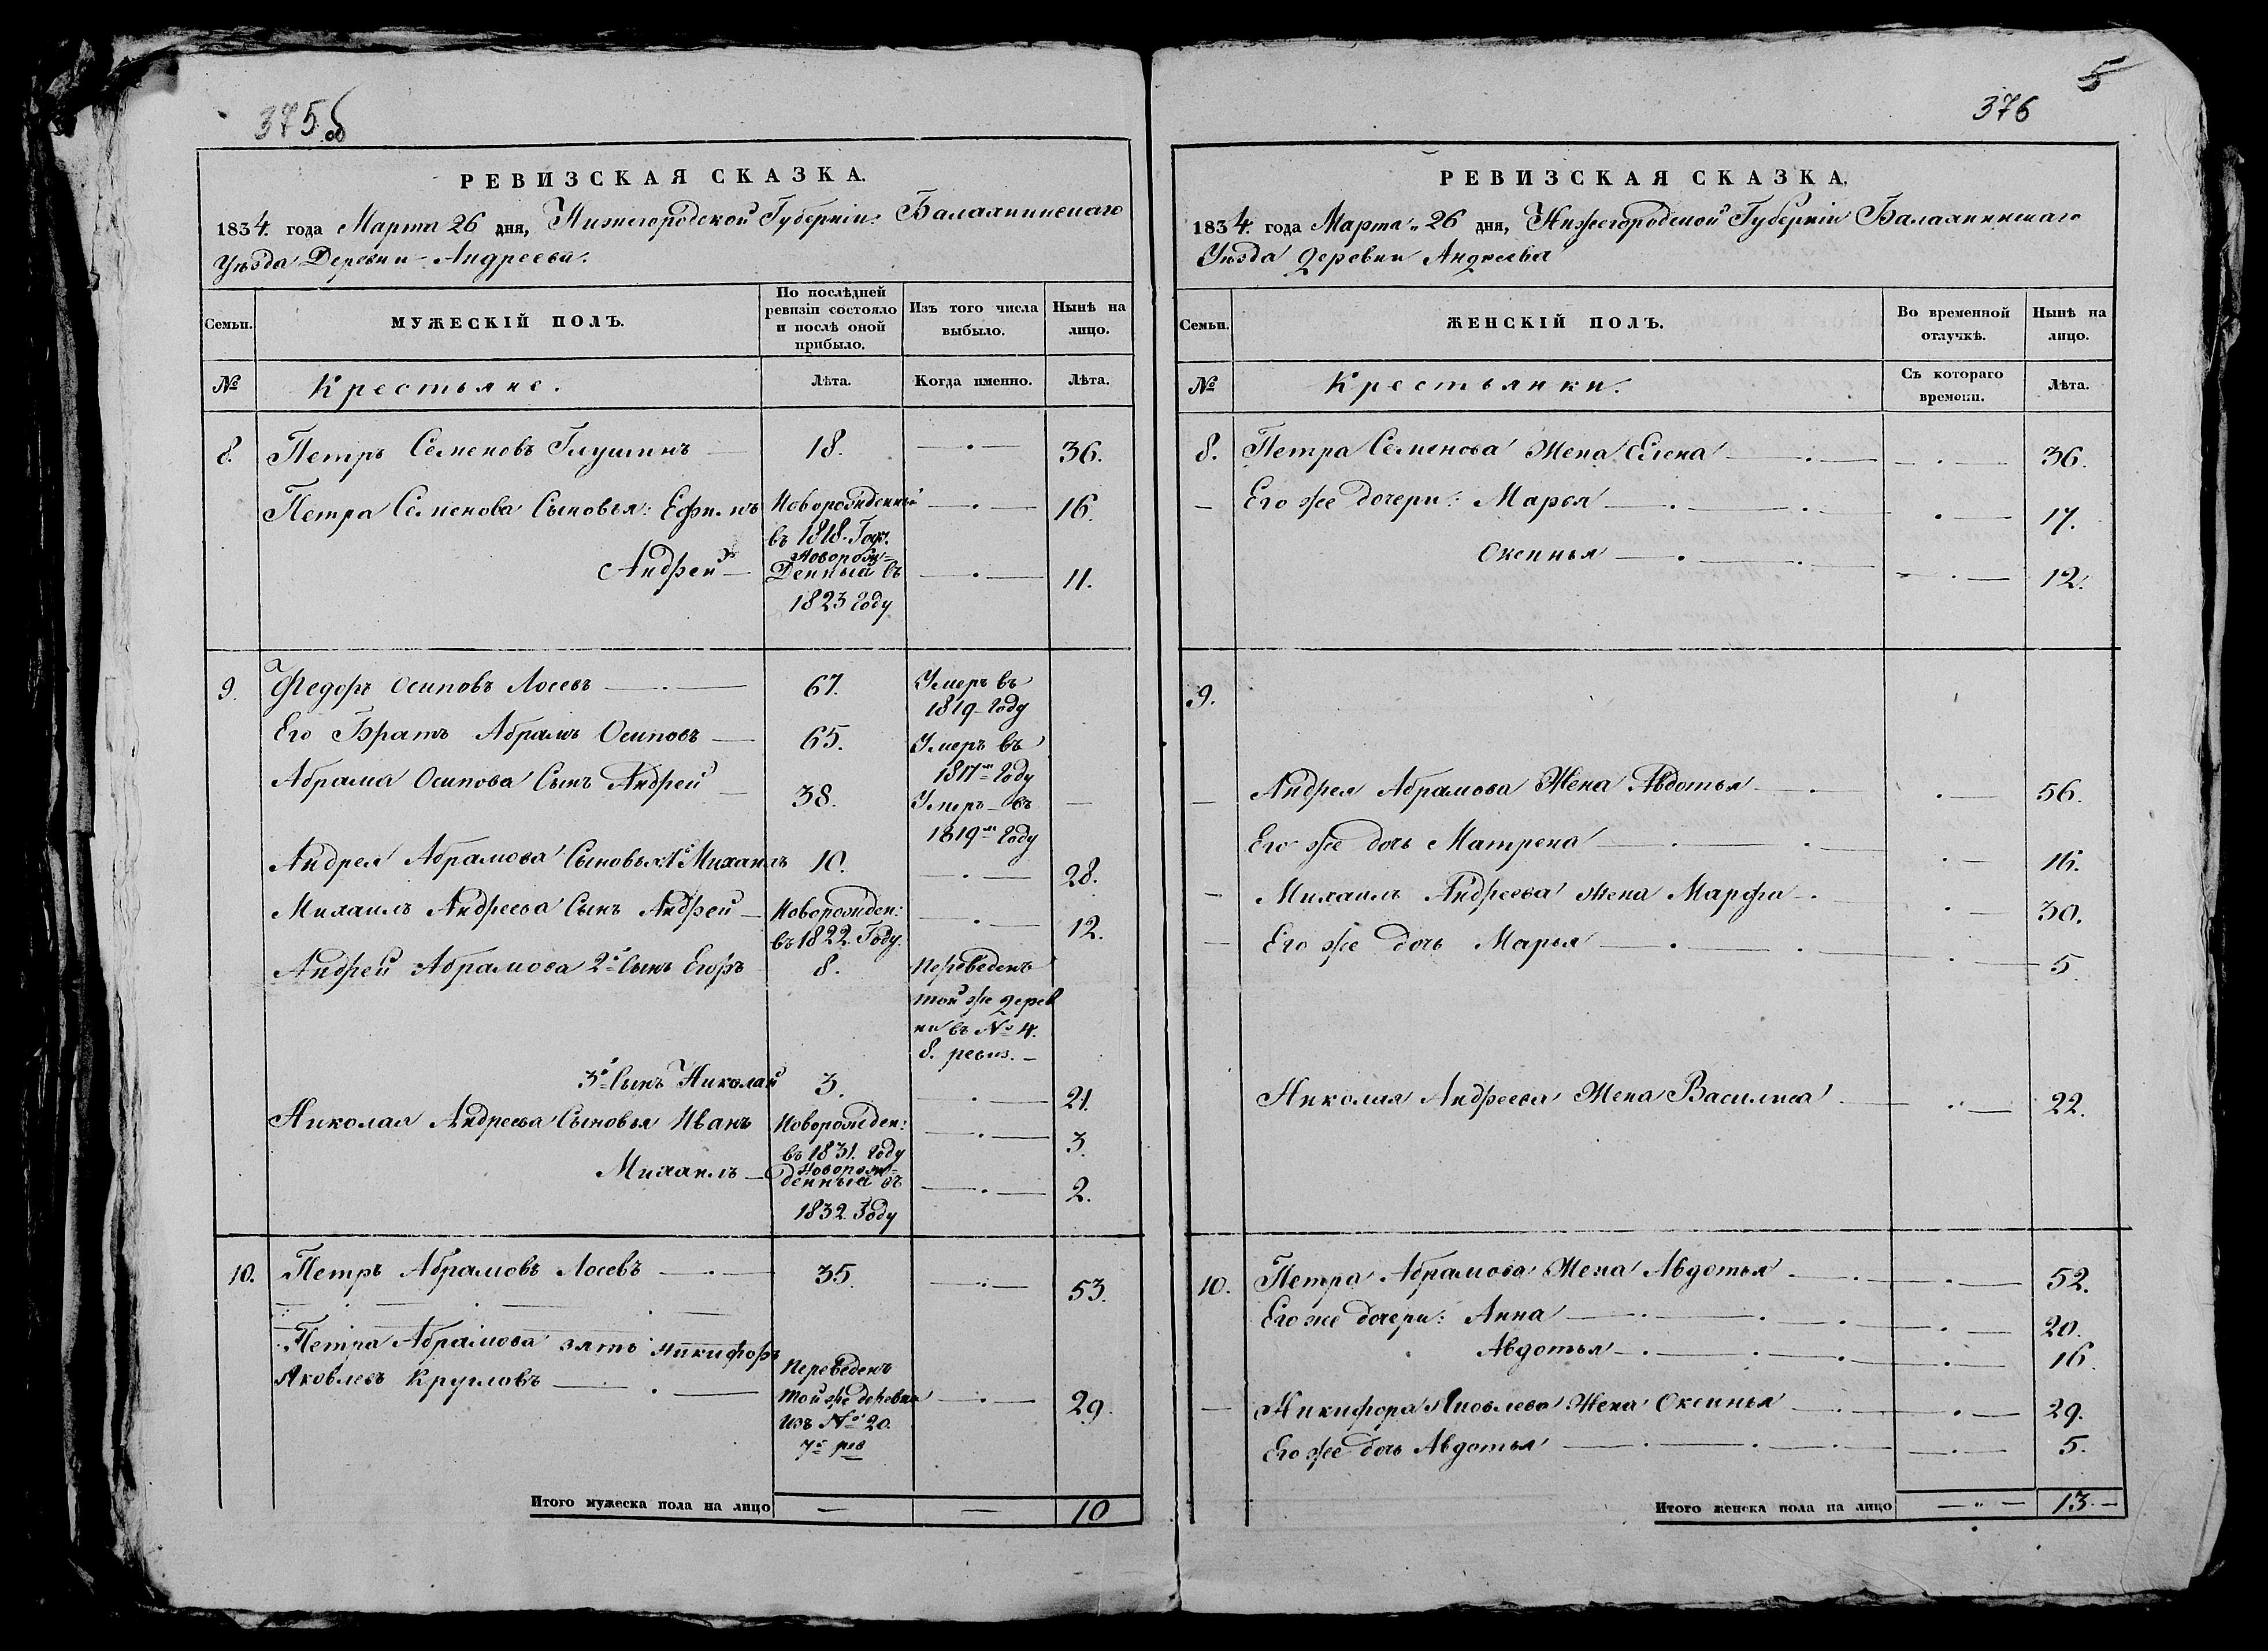 375 об
РЕВИЗСКАЯ СКАЗКА.
1834. года Марта 26 дня, Нижегородской Губерніи Балахнинскаго
Уѣзда Деревни Андреева.
Семьи. МУЖЕСКІЙ ПОЛЪ. По послѣдней ревизіи состояло и послѣ оной прибыло. Изъ того числа выбыло. Нынѣ на лицо.
№ Крестьяне. Лѣта. Когда именно. Лѣта.
8. Петръ Семеновъ Глушинъ 18. 36.
Петра Семенова Сыновья: Ефимъ Новорожденный 16.
въ 1818. Году.
Андрей Новорож=
денный въ 11.
1823 Году
9. Федоръ Осиповъ Лосевъ 67. Умеръ въ
1819 Году
Его Братъ Абрамъ Осиповъ 65. Умеръ въ
1817м Году
Абрама Осипова Сынъ Андрей 38. Умеръ въ
1819м Году
Андрея Абрамова Сыновья 1й Михаилъ 10. 28.
Михаилъ Андреева Сынъ Андрей Новорожден: 12.
въ 1822. Году.
Андрей Абрамова 2й Сынъ Егоръ 8. Переведенъ
той же дерев
ни въ № 4.
8. ревиз.
3й Сынъ Николай 3. 21.
Николая Андреева Сыновья Иванъ Новорожден: 3.
въ 1831. Году
Михаилъ Новорож=
денный въ 2.
1832. Году
10. Петръ Абрамовъ Лосевъ 35. 53.
Петра Абрамова зять Никифоръ
Яковлевъ Кругловъ Переведенъ
той же деревни 29.
изъ № 20.
7й рев
Итого мужеска пола на лицо 10
5
376
РЕВИЗСКАЯ СКАЗКА.
1834. года Марта 26 дня, Нижегородской Губерніи Балахнинскаго
Уѣзда Деревни Андреева
Семьи. ЖЕНСКІЙ ПОЛЪ. Во временной отлучкѣ. Нынѣ на лицо.
№ Крестьянки. Съ котораго времени. Лѣта.
8. Петра Семенова Жена Елена 36.
Его же дочери: Марья 17.
Оксинья 12.
9.
Андрея Абрамова Жена Авдотья 56.
Его же дочь Матрена 16.
Михаилъ Андреева жена Марфа 30.
Его же дочь Марья 5
Николая Андреева Жена Василиса 22.
10. Петра Абрамова Жена Авдотья 52.
Его же дочери: Анна 20.
Авдотья 16.
Никифора Яковлева Жена Оксинья 29.
Его же дочь Авдотья 5.
Итого женска пола на лицо 13.